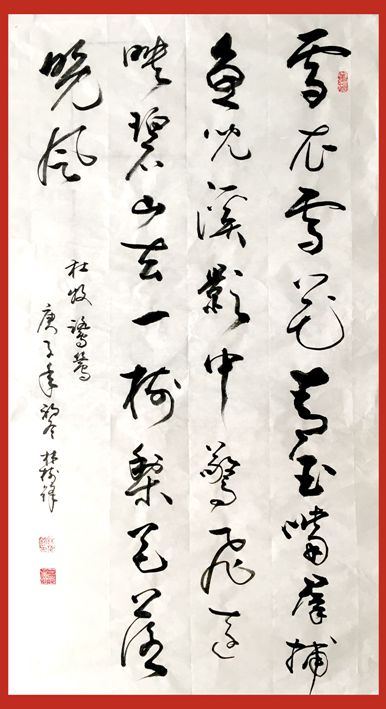 雪衣雪髮青玉嘴群捕
魚兒溪影中驚飛遠
映碧山去一樹梨花落
晚風
杜牧鷺鷥
庚子年初冬林樹鋒